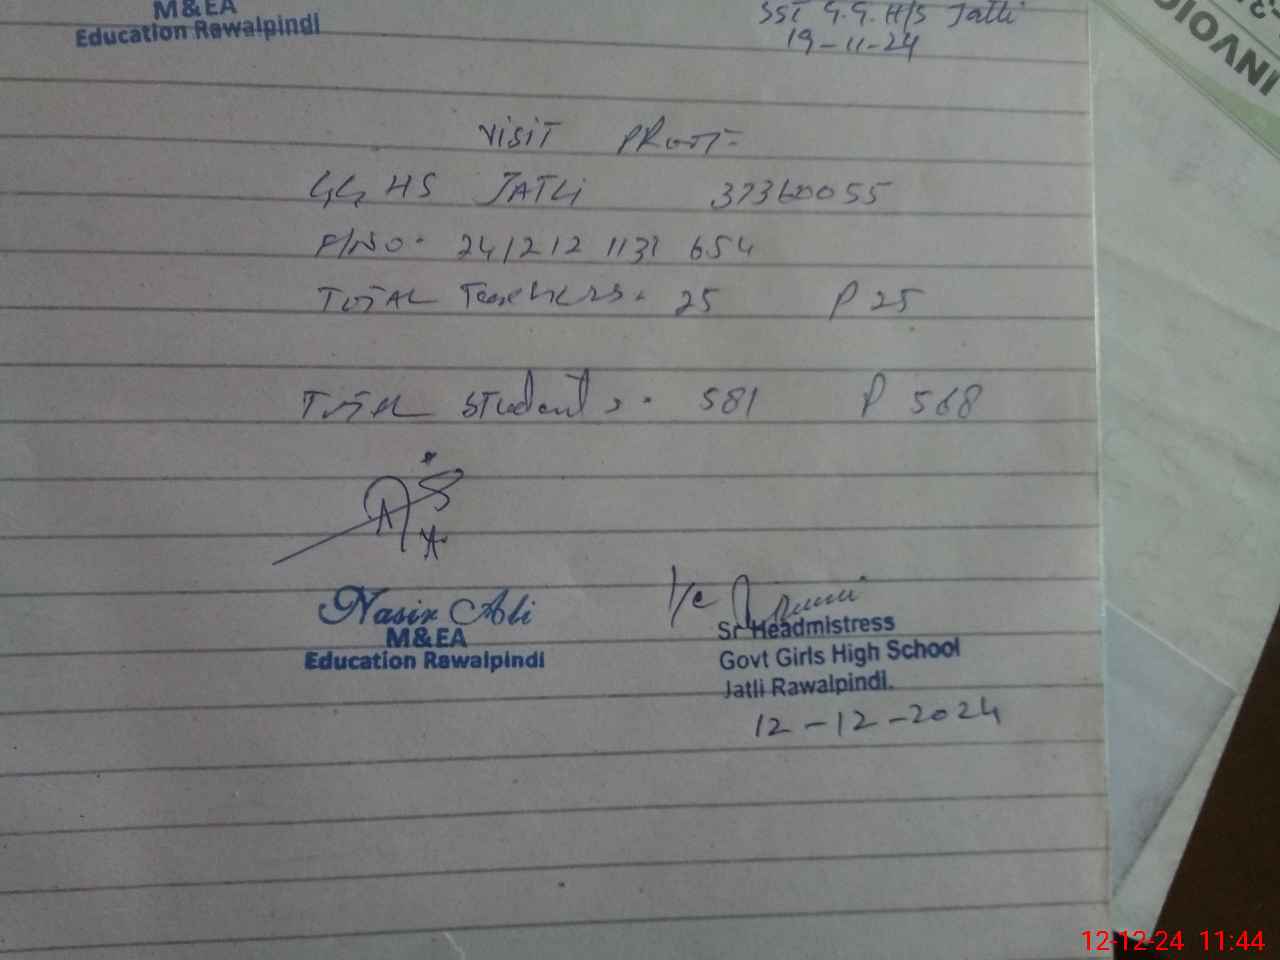 M&EA
Education Rawalpindi
SST G.G.H/S Jatli
19-11-24
INVOIC
VISIT PROOF
GG HS JATLi 37360055
F/NO. 241212 1131 654
TOTAL Teachers. 25 P 25
TOTAL Students. 581 P 568
Nasir Ali
M&EA
Education Rawalpindi
I/C
Sr Headmistress
Govt Girls High School
Jatli Rawalpindi.
12-12-2024
12-12-24 11:44